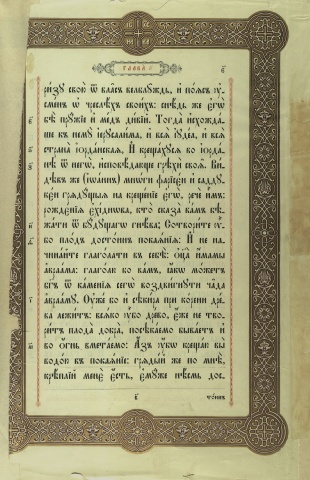 ГЛАВА
ризу свою ѿ власъ велблуждь, и поясъ ѹс
менъ ѡ чреслѣхъ своихъ: снѣдь же егѡ
бѣ пружіе и медъ дивій. Тогда исхожда
ше къ нему іерусалима, и вся іудеа, и вся
страна іорданская, И крещахуся во іорда
нѣ ѿ негѡ, исповѣдающе грѣхи своя. Ви
дѣвъ же (іѡаннъ) мнѡги фарісеи и садду
кеи грядущыя на крещеніе егѡ, рече имъ:
рождєнія єхіднѡва, кто сказа вамъ бѣ
жати ѿ будущагѡ гнѣва; Сотворите ѹ
бо плодъ достоинъ покаянія: И не на
чинайте глаголати въ себѣ: оц҃а имамы
авраама: глаголю бо вамъ, якѡ можетъ
бг҃ъ ѿ каменія сегѡ воздвигнути чада
аврааму. Оуже бо и сѣкира при корени дре
ва лежитъ: всяко ѹбо древо, еже не тво
ритъ плода добра, посѣкаемо бываетъ и
во огнь вметаемо: Азъ ѹбѡ крещаю вы
водою въ покаяніе: грядый же по мнѣ,
крѣплій мене есть, емуже нѣсмь дос
тоинъ